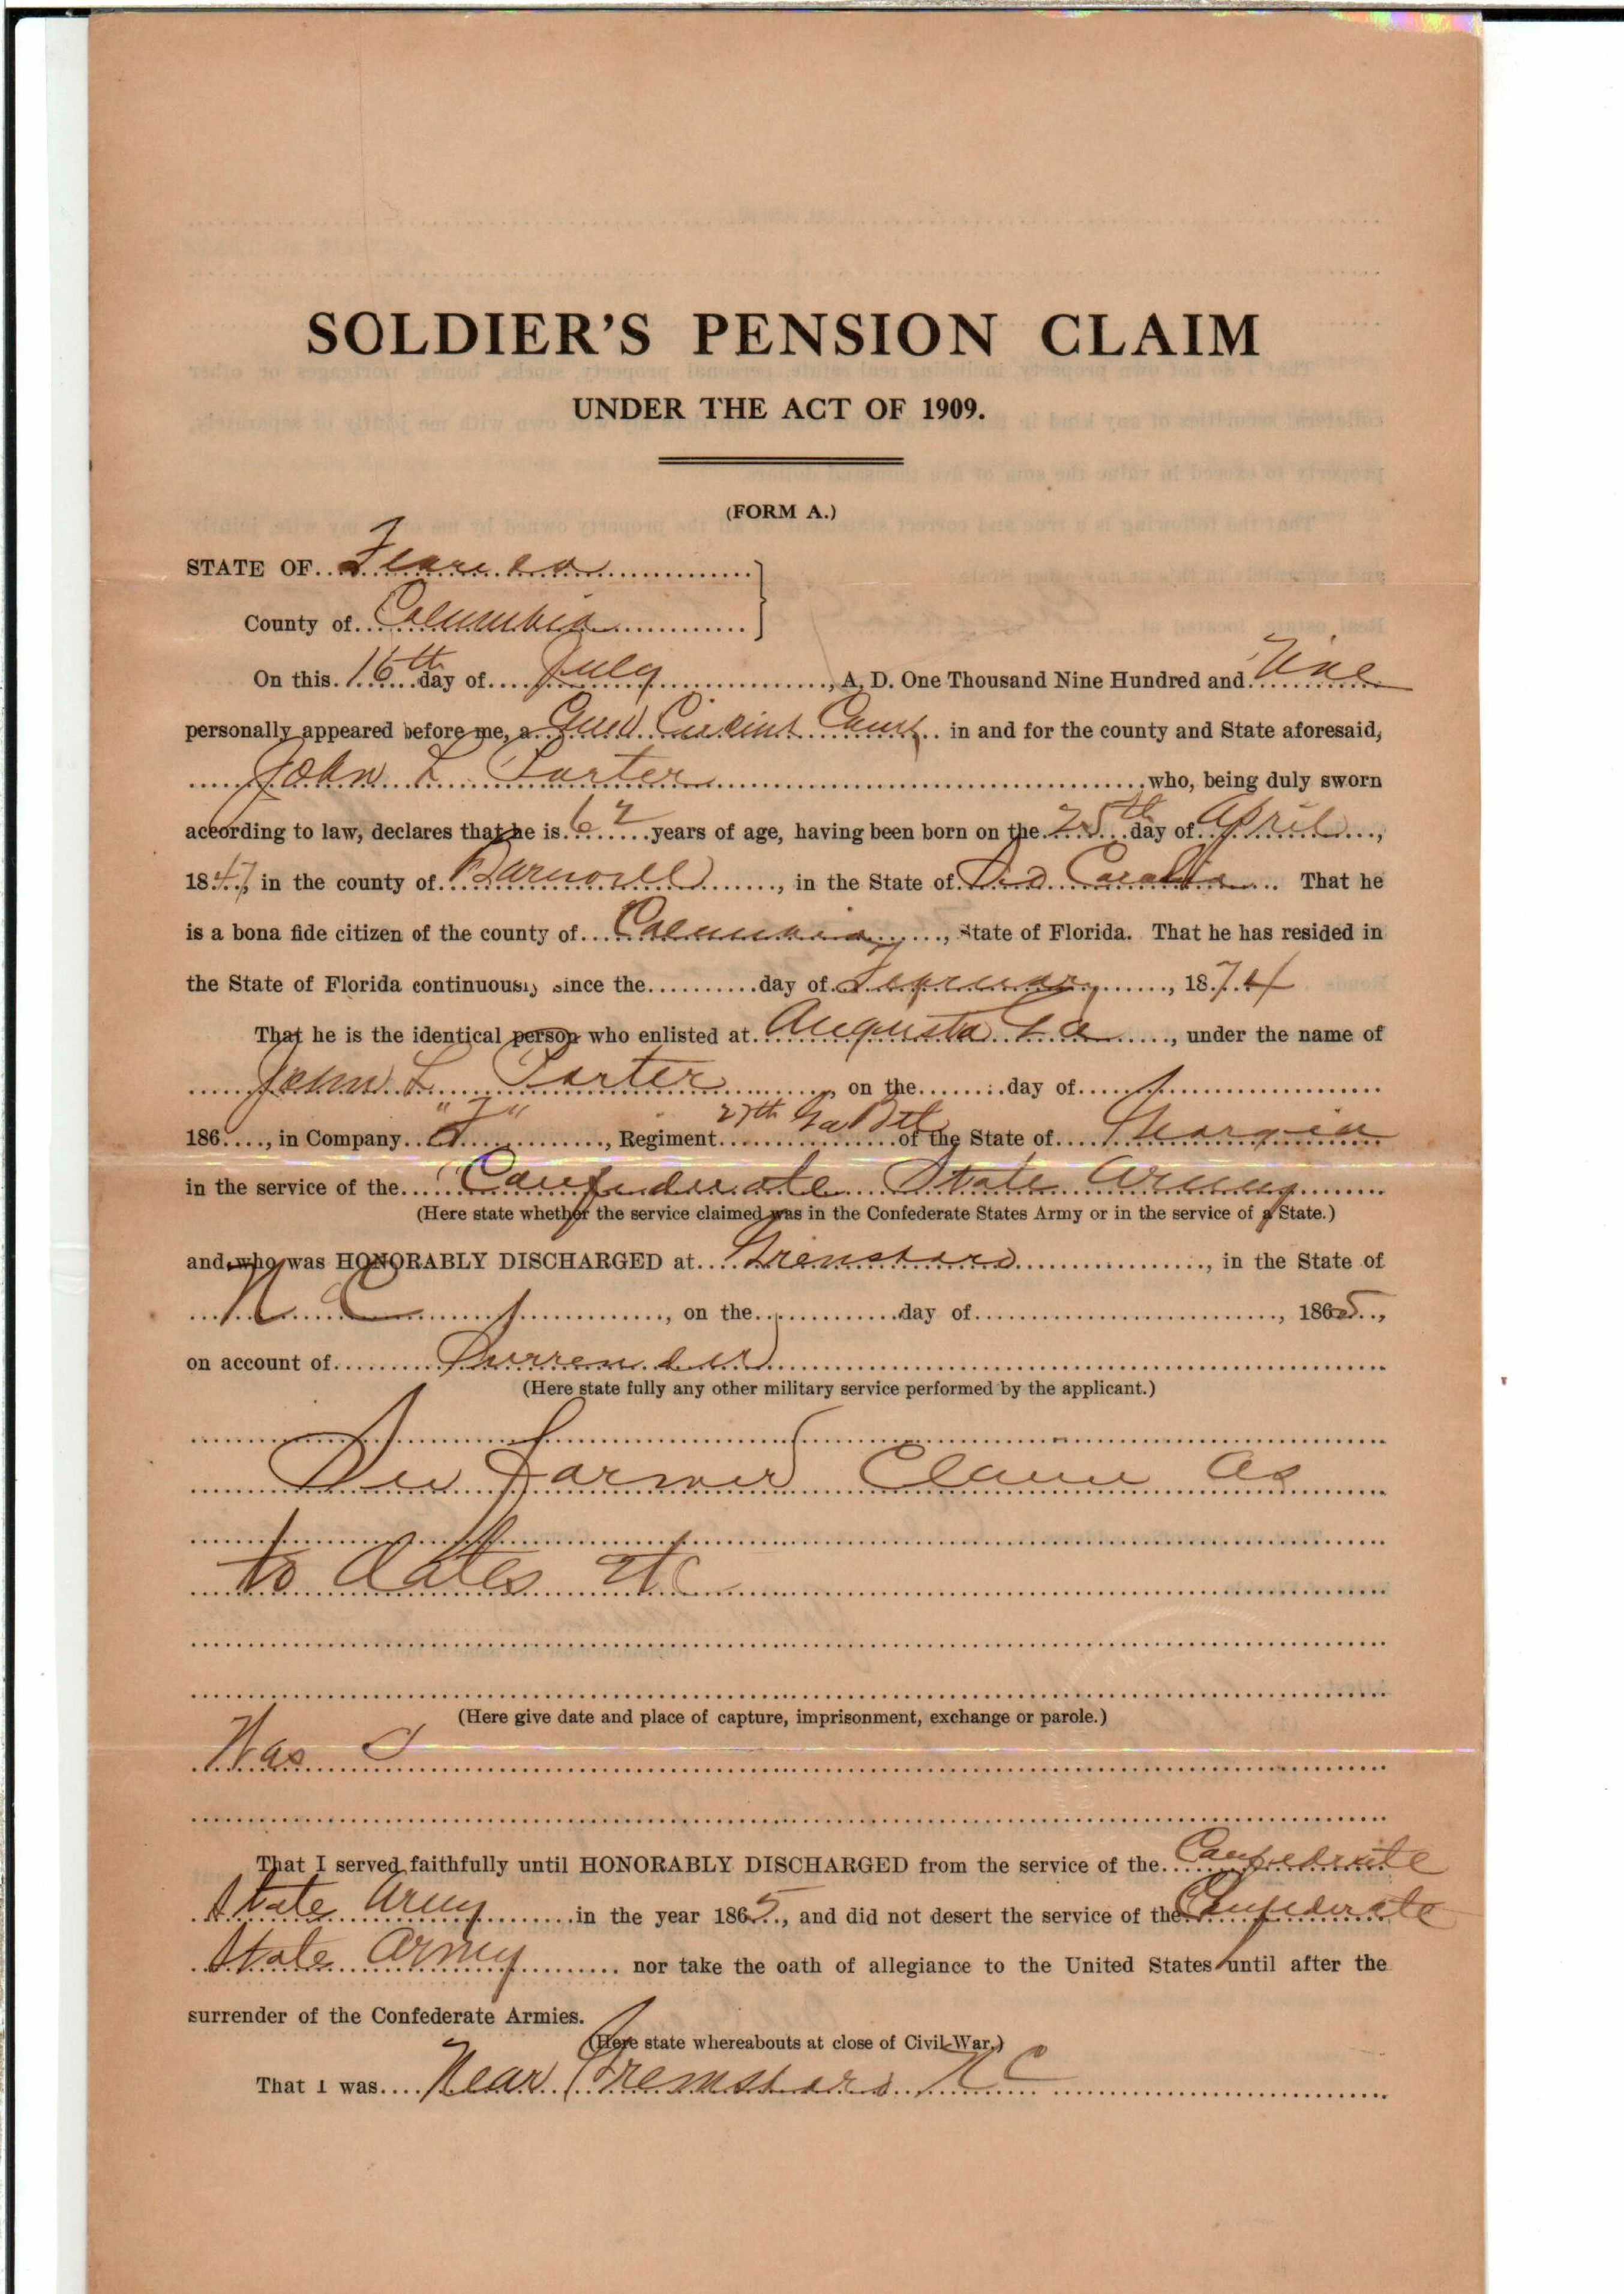 SOLDIER'S PENSION CLAIM
UNDER THE ACT OF 1909.
(FORM A.)
STATE OF Florida
County of Columbia
On this 16th day of July, A. D. One Thousand Nine Hundred and Nine
personally appeared before me, a Circuit Court in and for the county and State aforesaid,
John L. Porter who, being duly sworn
according to law, declares that he is 62 years of age, having been born on the 25th day of April,
1847, in the county of Barnwell, in the State of So. Carolina. That he
is a bona fide citizen of the county of Columbia, State of Florida. That he has resided in
the State of Florida continuously since the day of February, 1874
That he is the identical person who enlisted at Augusta Ga, under the name of
John L. Porter, on the day of
186, in Company "F", Regiment 27th Ga Btl of the State of Georgia
in the service of the Confederate State Army
(Here state whether the service claimed was in the Confederate States Army or in the service of a State.)
and who was HONORABLY DISCHARGED at Greensboro, in the State of
N. C., on the day of, 1865,
on account of Surrender
(Here state fully any other military service performed by the applicant.)
See Former Claim as
to dates etc
(Here give date and place of capture, imprisonment, exchange or parole.)
Was
That I served faithfully until HONORABLY DISCHARGED from the service of the Confederate
State Army in the year 1865, and did not desert the service of the Confederate
State Army nor take the oath of allegiance to the United States until after the
surrender of the Confederate Armies.
(Here state whereabouts at close of Civil War.)
That I was Near Greensboro N C